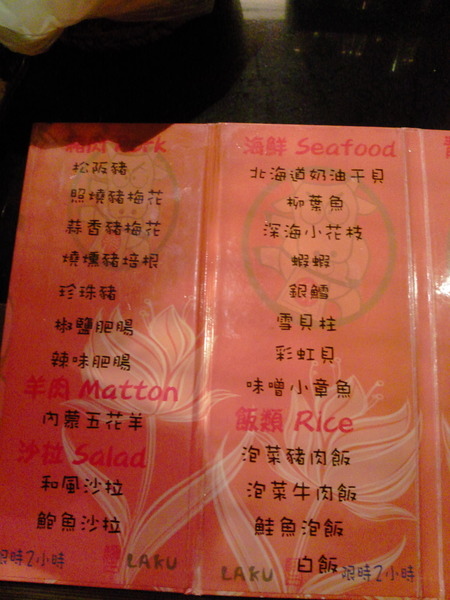 豬肉 Pork
松阪豬
照燒豬梅花
蒜香豬梅花
燒燻豬培根
珍珠豬
椒鹽肥腸
辣味肥腸
羊肉 Matton
內蒙五花羊
沙拉 Salad
和風沙拉
鮑魚沙拉
限時2小時
LAKU
海鮮 Seafood
北海道奶油干貝
柳葉魚
深海小花枝
蝦蝦
銀鱈
雪貝柱
彩虹貝
味噌小章魚
飯類 Rice
泡菜豬肉飯
泡菜牛肉飯
鮭魚泡飯
白飯
LAKU
限時2小時